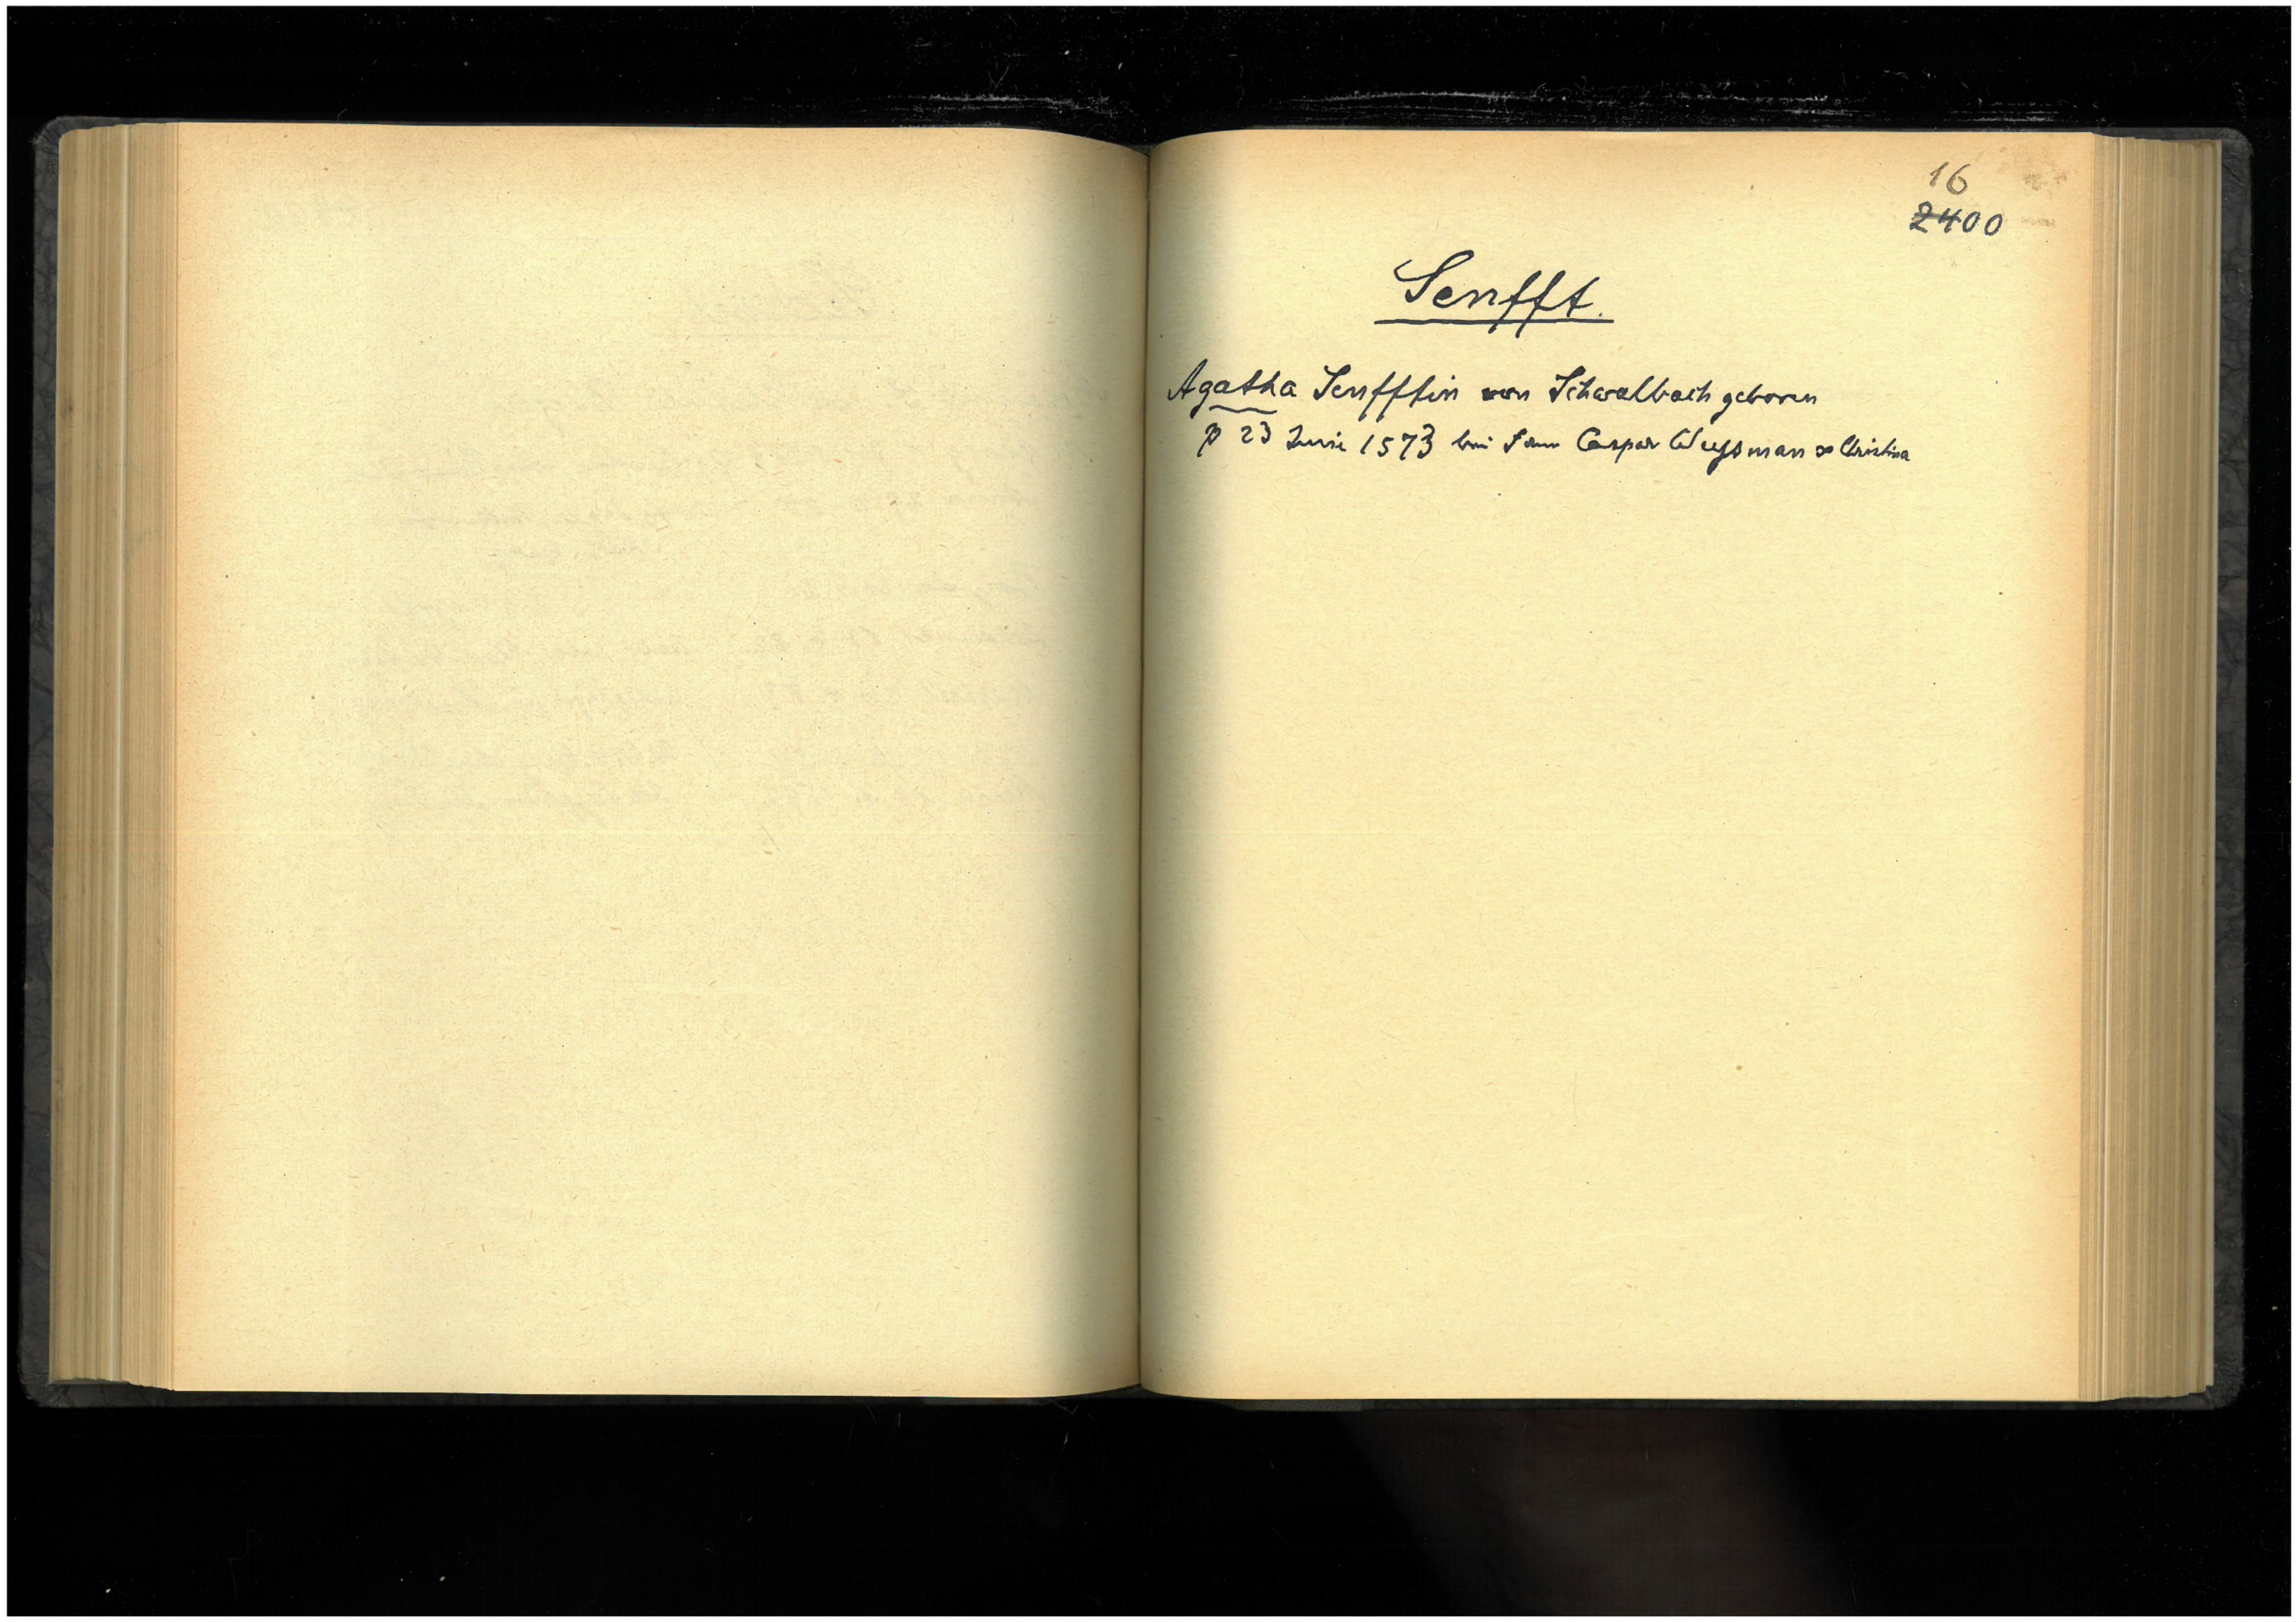 16
2400
Senfft.
Agatha Senfftin von Schwalbach geboren
p 23 Junii 1573 bei Caspar Weyssman ∞ Christina